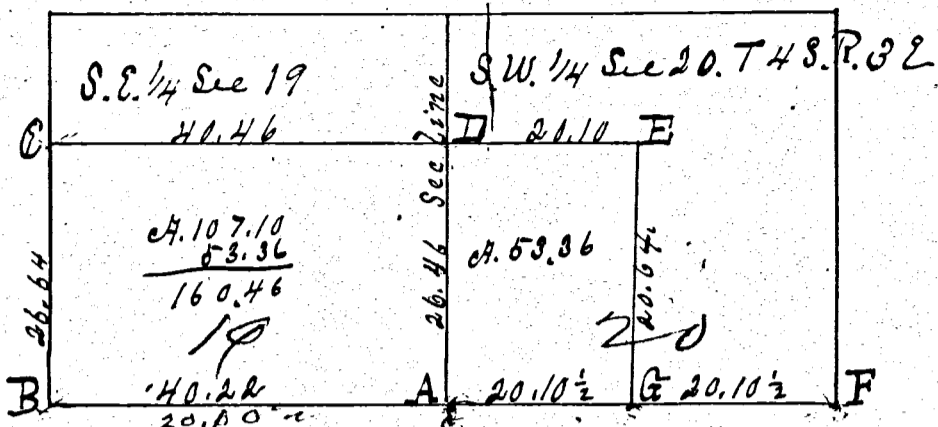 S.E. 1/4 Sec 19
S.W. 1/4 Sec 20. T 4 S. R. 3 E
C
40.46
Sec Line
D
20.10
E
A. 107.10
53.36
160.46
A. 53.36
26.64
26.46
20.64
19
20
B
40.22
A
20.10 1/2
G
20.10 1/2
F